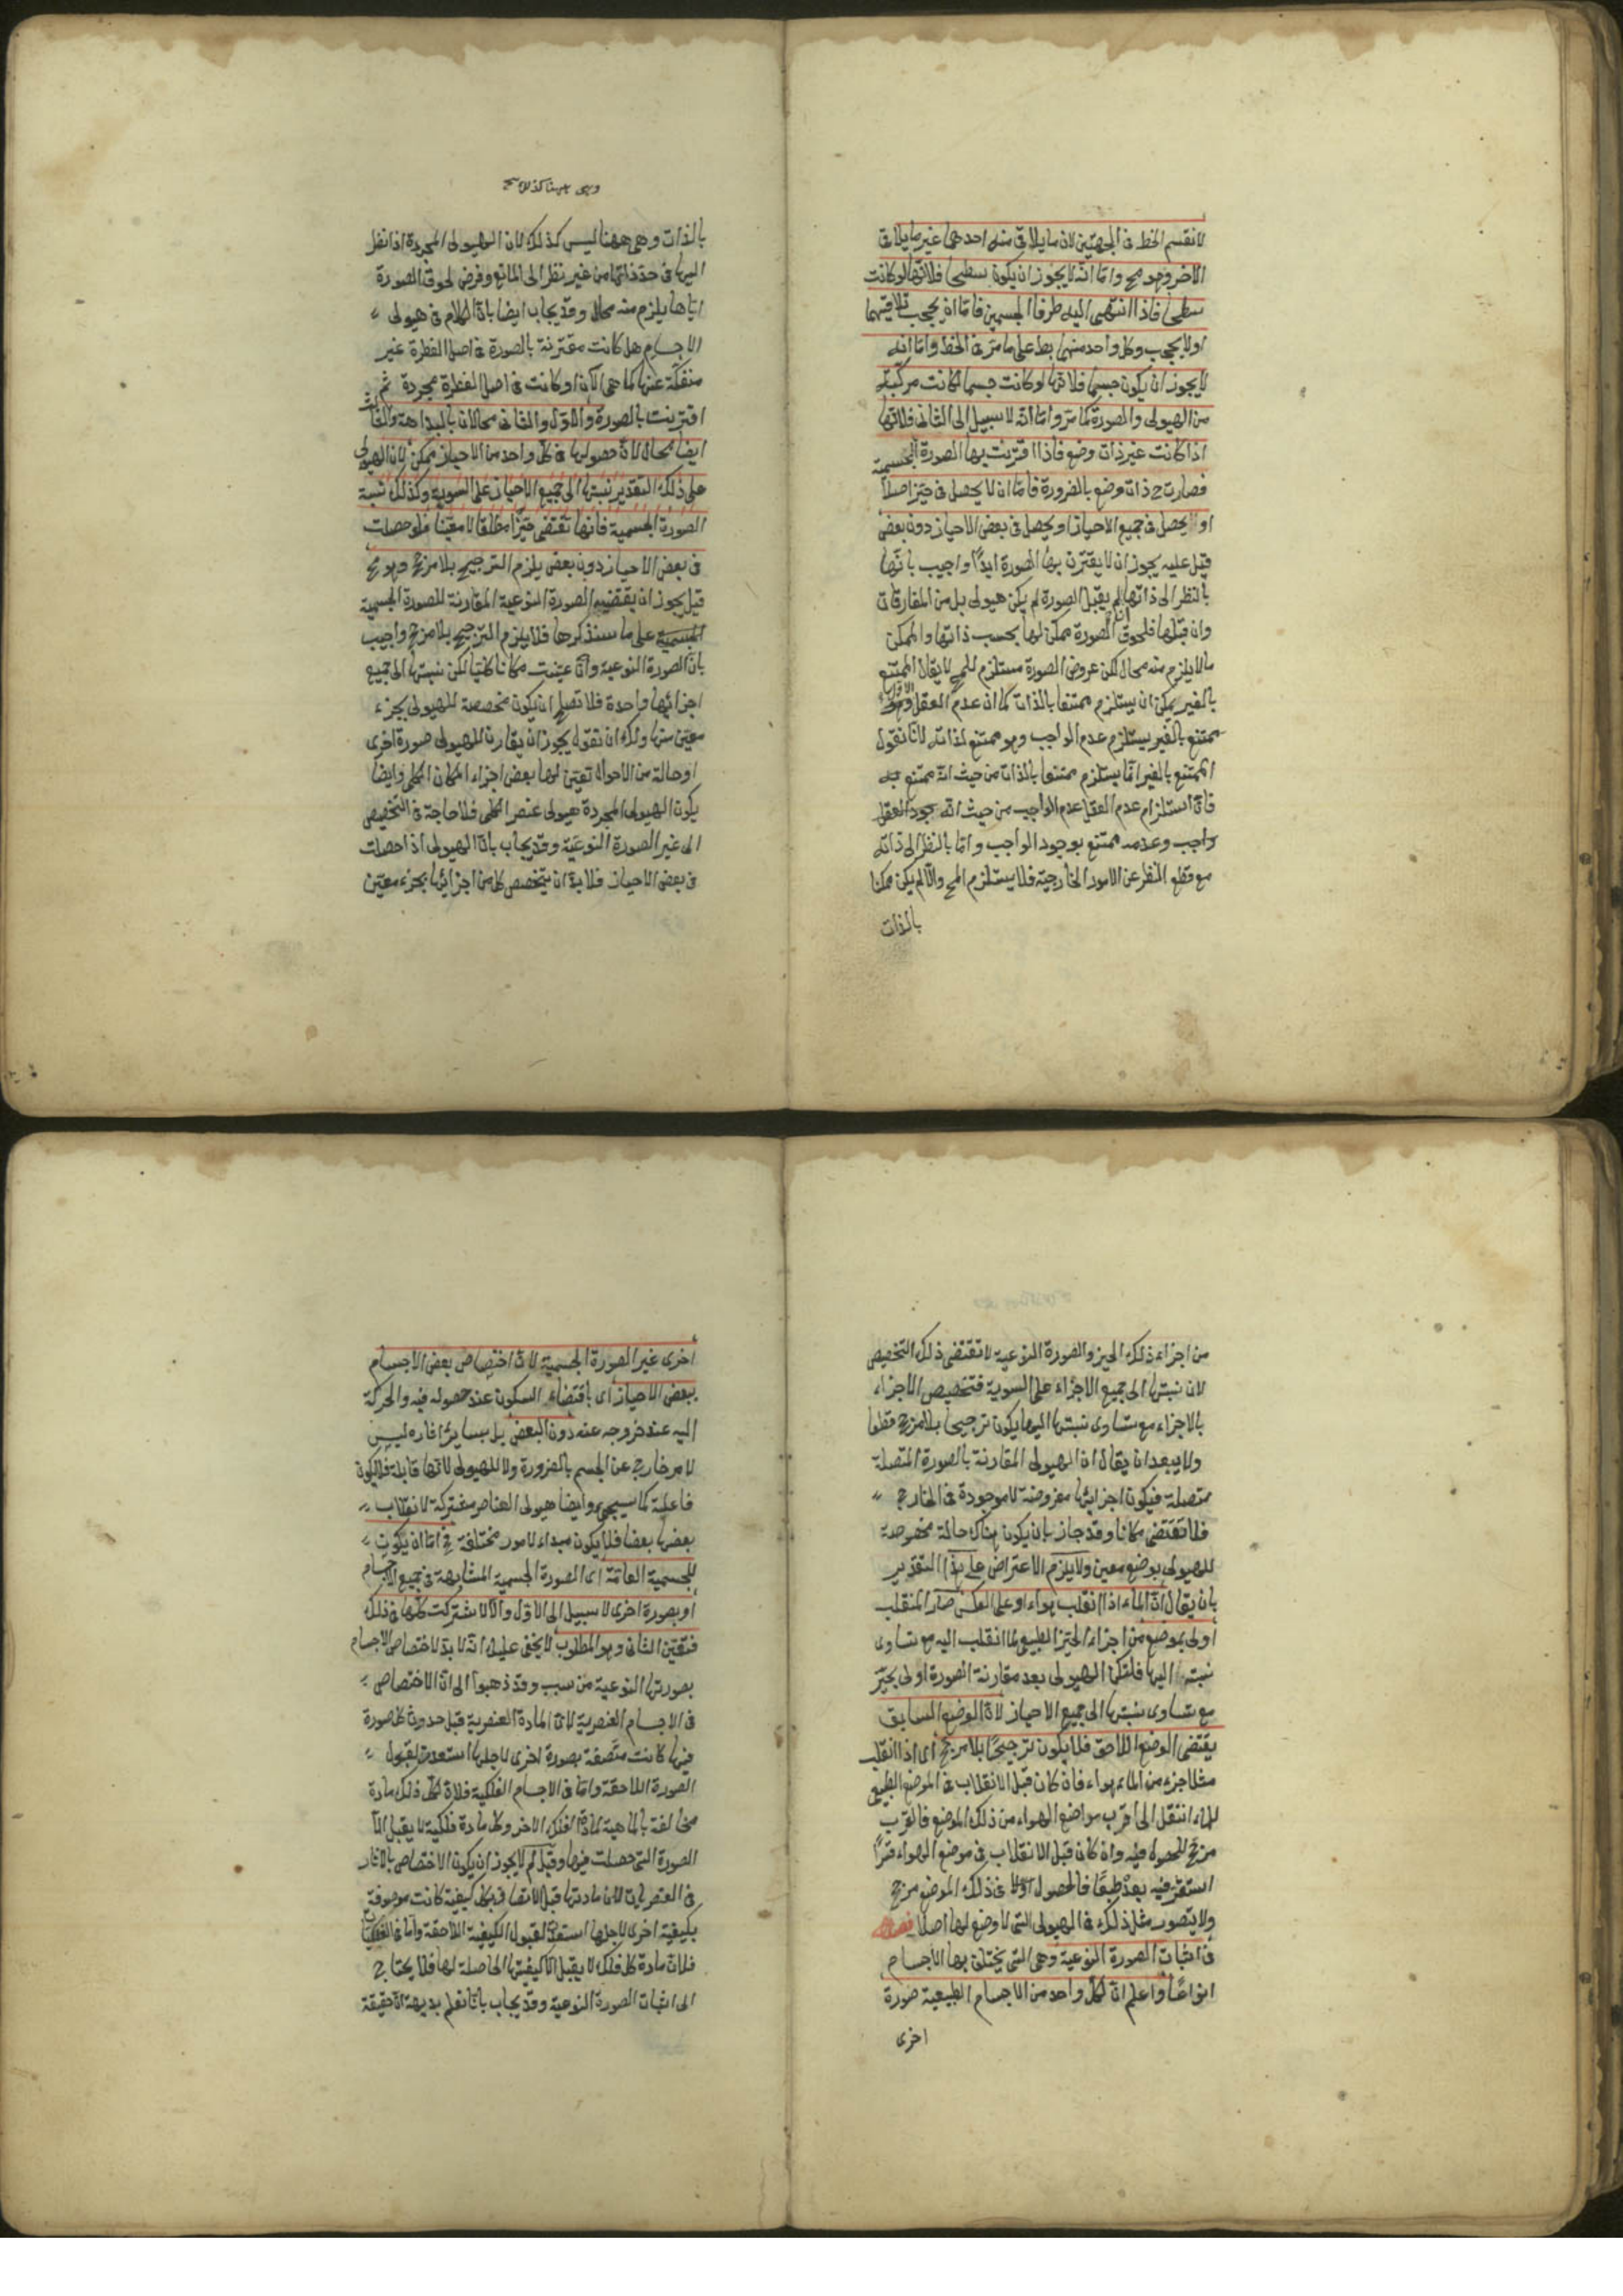 لانقسم الخط فى الجهتين لان ما يلاقى منه احدهما غير ما يلاقى
الاخر وهو مح واما انه لا يجوز ان يكون سطحا فلانها لو كانت
سطحا فاذا انتهى اليه طرفا الجسمين فاما ان يحجب تلاقيهما
اولا يحجب وكل واحد منهما بط على ما مر فى الخط واما انه
لا يجوز ان يكون جسما فلانها لو كانت جسما لكانت مركبة
من الهيولى والصورة كما مر واما انه لا سبيل الى الثانى فلانها
اذا كانت غير ذات وضع فاذا اقترنت بها الصورة الجسمية
فصارت ح ذات وضع بالضرورة فاما ان لا يحصل فى حيز اصلا
او يحصل فى جميع الاحياز او يحصل فى بعض الاحياز دون بعض
قيل عليه يجوز ان لا يقترن بها الصورة ابدا واجيب بانها
بالنظر الى ذاتها ان لم يقبل الصورة لم يكن هيولى بل من المفارقات
وان قبلها فلحوق الصورة ممكن لها بحسب ذاتها والممكن
ما لا يلزم منه محال لكن عروض الصورة مستلزم للمح لا يقال الممتنع
بالغير يمكن ان يستلزم ممتنعا بالذات كما ان عدم العقل الاول وهو
ممتنع بالغير يستلزم عدم الواجب وهو ممتنع لذاته لانا نقول
الممتنع بالغير انما يستلزم ممتنعا بالذات من حيث انه ممتنع به
فان استلزام عدم العقل عدم الواجب من حيث انه وجود العقل
واجب وعدمه ممتنع بوجود الواجب واما بالنظر الى ذاته
مع قطع النظر عن الامور الخارجية فلا يستلزم المح والا لم يكن ممكنا
بالذات
وهى ههنا كذلك صح
بالذات وهى ههنا ليس كذلك لان الهيولى المجردة اذا نظر
اليها فى حد ذاتها من غير نظر الى المانع وفرض لحوق الصورة
اياها يلزم منه محال وقد يجاب ايضا بان الكلام فى هيولى
الاجسام هل كانت مقترنة بالصورة فى اصل الفطرة غير
منفكة عنها كما هى الآن او كانت فى اصل الفطرة مجردة ثم
اقترنت بالصورة والاول والثانى محالان بالبداهة والثالث
ايضا محال لان حصولها فى كل واحد من الاحياز ممكن لان الهيولى
على ذلك التقدير نسبتها الى جميع الاحياز على السوية وكذلك نسبة
الصورة الجسمية فانها تقتضى حيزا مطلقا لا معينا فلو حصلت
فى بعض الاحياز دون بعض يلزم الترجيح بلا مرجح وهو مح
قيل يجوز ان يقتضيه الصورة النوعية المقارنة للصورة الجسمية
الجسمية على ما سنذكرها فلا يلزم الترجيح بلا مرجح واجيب
بان الصورة النوعية وان عينت مكانا كليا لكن نسبتها الى جميع
اجزائها واحدة فلا تصلح ان يكون مخصصة للهيولى بجزء
معين منها ولك ان تقول يجوز ان يقارن الهيولى صورة اخرى
او حالة من الاحوال تعين لها بعض اجزاء المكان الكلى وايضا
يكون الهيولى المجردة هيولى عنصر الكلى فلا حاجة فى التخصيص
الى غير الصورة النوعية وقد يجاب بان الهيولى اذا حصلت
فى بعض الاحياز فلا بد ان يتخصص كل من اجزائها بجزء معين
من اجزاء ذلك الحيز والصورة النوعية لا تقتضى ذلك التخصيص
لان نسبتها الى جميع الاجزاء على السوية فتخصيص الاجزاء
بالاجزاء مع تساوى نسبتها اليها يكون ترجيحا بلا مرجح قطعا
ولا يبعد ان يقال ان الهيولى المقارنة بالصورة المتصلة
متصلة فيكون اجزائها مفروضة لا موجودة فى الخارج
فلا تقتضى مكانا وقد جاز بان يكون هناك حالة مخصوصة
للهيولى بوضع معين ولا يلزم الاعتراض على هذا التقدير
بان يقال ان الماء اذا انقلب هواء او على العكس صار المنقلب
اولى بموضع من اجزاء الحيز الطبيعى لما انقلب اليه مع تساوى
نسبته اليها فلتكن الهيولى بعد مقارنة الصورة اولى بحيز
مع تساوى نسبتها الى جميع الاحياز لان الوضع السابق
يقتضى الوضع اللاحق فلا يكون ترجيحا بلا مرجح اى اذا انقلب
مثلا جزء من الماء هواء فان كان قبل الانقلاب فى الموضع الطبيعى
للماء انتقل الى اقرب مواضع الهواء من ذلك الموضع فالقرب
مرجح للحصول فيه وان كان قبل الانقلاب فى موضع الهواء قسرا
استقر فيه بعد طبعا فالحصول اولا فى ذلك الموضع مرجح
ولا يتصور مثل ذلك فى الهيولى التى لا وضع لها اصلا فصل
فى اثبات الصورة النوعية وهى التى يختلف بها الاجسام
انواعا واعلم ان لكل واحد من الاجسام الطبيعية صورة
اخرى
اخرى غير الصورة الجسمية لان اختصاص بعض الاجسام
ببعض الاحياز اى باقتضاء السكون عند حصوله فيه والحركة
اليه عند خروجه عنه دون البعض بل بسائر اثاره ليس
لامر خارج عن الجسم بالضرورة ولا للهيولى لانها قابلة فلا يكون
فاعلية كما سيجئ وايضا هيولى العناصر مشتركة لانقلاب
بعضها بعضا فلا يكون مبداء لامور مختلفة فح اما ان يكون
للجسمية العامة اى الصورة الجسمية المتشابهة فى جميع الاجسام
او بصورة اخرى لا سبيل الى الاول والا لاشتركت كلها فى ذلك
فتعين الثانى وهو المطلوب لا يخفى عليك انه لا بد لاختصاص الاجسام
بصورتها النوعية من سبب وقد ذهبوا الى ان الاختصاص
فى الاجسام العنصرية لان المادة العنصرية قبل حدوث كل صورة
فيها كانت متصفة بصورة اخرى لاجلها استعدت لقبول
الصورة اللاحقة واما فى الاجسام الفلكية فلان لكل ذلك مادة
مخالفة بالماهية لمادة الفلك الاخر وكل مادة فلكية لا يقبل الا
الصورة التى حصلت فيها وقيل لم لا يجوز ان يكون الاختصاص بالاثار
فى العنصريات لان مادتها قبل الاتصاف بكل كيفية كانت موصوفة
بكيفية اخرى لاجلها استعدت لقبول الكيفية اللاحقة واما فى الفلكيات
فلان مادة كل فلك لا يقبل الا كيفيتها الحاصلة لها فلا يحتاج
الى اثبات الصورة النوعية وقد يجاب بانا نعلم بديهة ان حقيقة